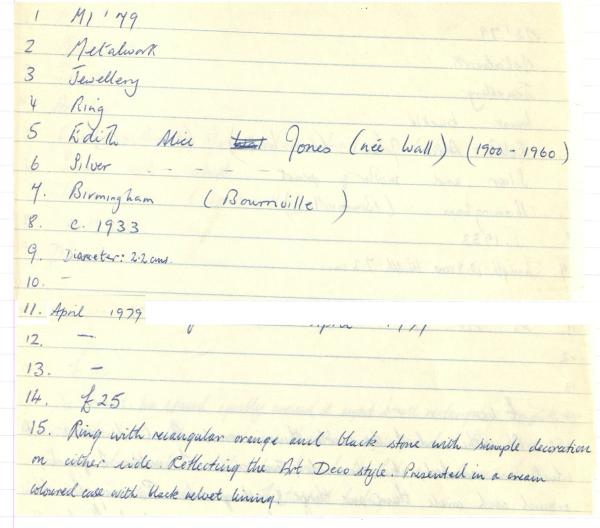 1 M1 '79
2 Metalwork
3 Jewellery
4 Ring
5 Edith Alice Jones (née Wall) (1900 - 1960)
6 Silver - - - - - -
7. Birmingham (Bournville)
8. c. 1933
9. Diameter: 2.2cms.
10. -
11. April 1979
12. -
13. -
14. £25
15. Ring with recangular orange and black stone with simple decoration
on either side. Reflecting the Art Deco style. Presented in a cream
coloured case with black velvet lining.